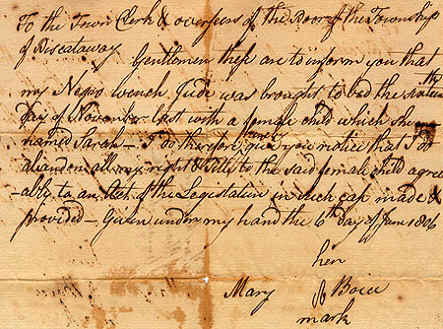 To the Town Clerk & overseers of the Poor of the Township
of Piscataway
Gentlemen these are to inform you that
my Negro wench Jude was brought to bed the
Day of November last with a female child which she
named Sarah — I do therefore give you notice that I do
abandon all my right & Title to the said female child agree
-ably to an Act of the Legislature in such case made &
provided — Given under my hand the 6th Day of June 1806
her
Mary Boice
mark